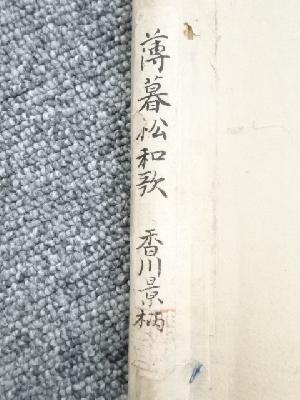 薄暮松和歌 香川景柄